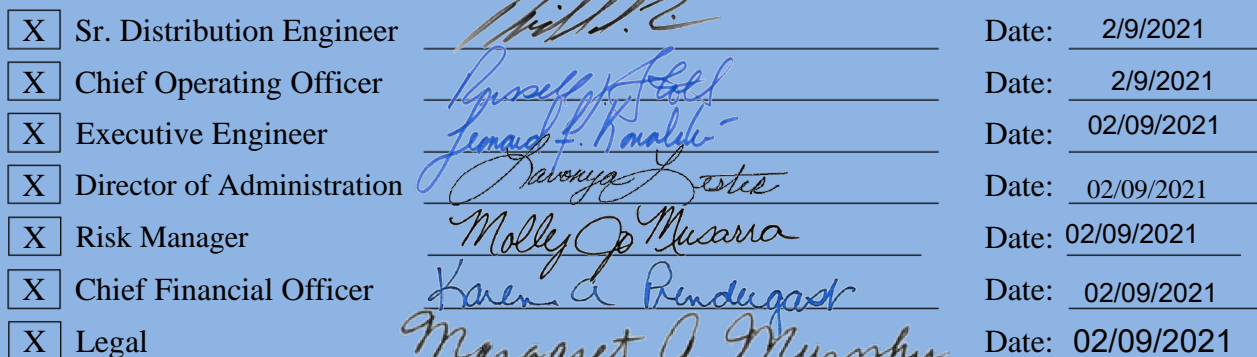 X Sr. Distribution Engineer Date: 2/9/2021
X Chief Operating Officer Russell Date: 2/9/2021
X Executive Engineer Date: 02/09/2021
X Director of Administration Lavonya Lester Date: 02/09/2021
X Risk Manager Molly Jo Musarra Date: 02/09/2021
X Chief Financial Officer Karen A Pendergast Date: 02/09/2021
X Legal Margaret A. Murphy Date: 02/09/2021